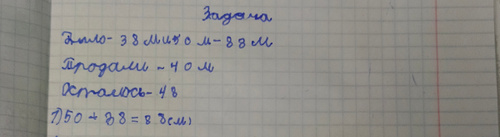 Задача
Было - 38 м и 50 м - 88 м
Продали - 40 м
Осталось - 48
1) 50 + 38 = 88 (м)